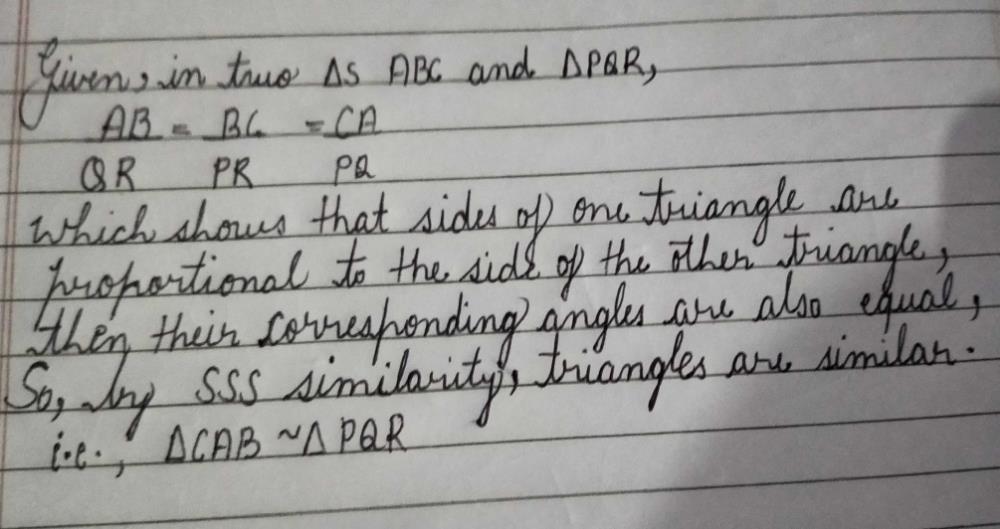 Given, in two ΔS ABC and ΔPQR,
AB = BC = CA
QR PR PQ
which shows that sides of one triangle are
proportional to the side of the other triangle,
then their corresponding angles are also equal,
So, by SSS similarity, triangles are similar.
i.e., ΔCAB ~ Δ PQR